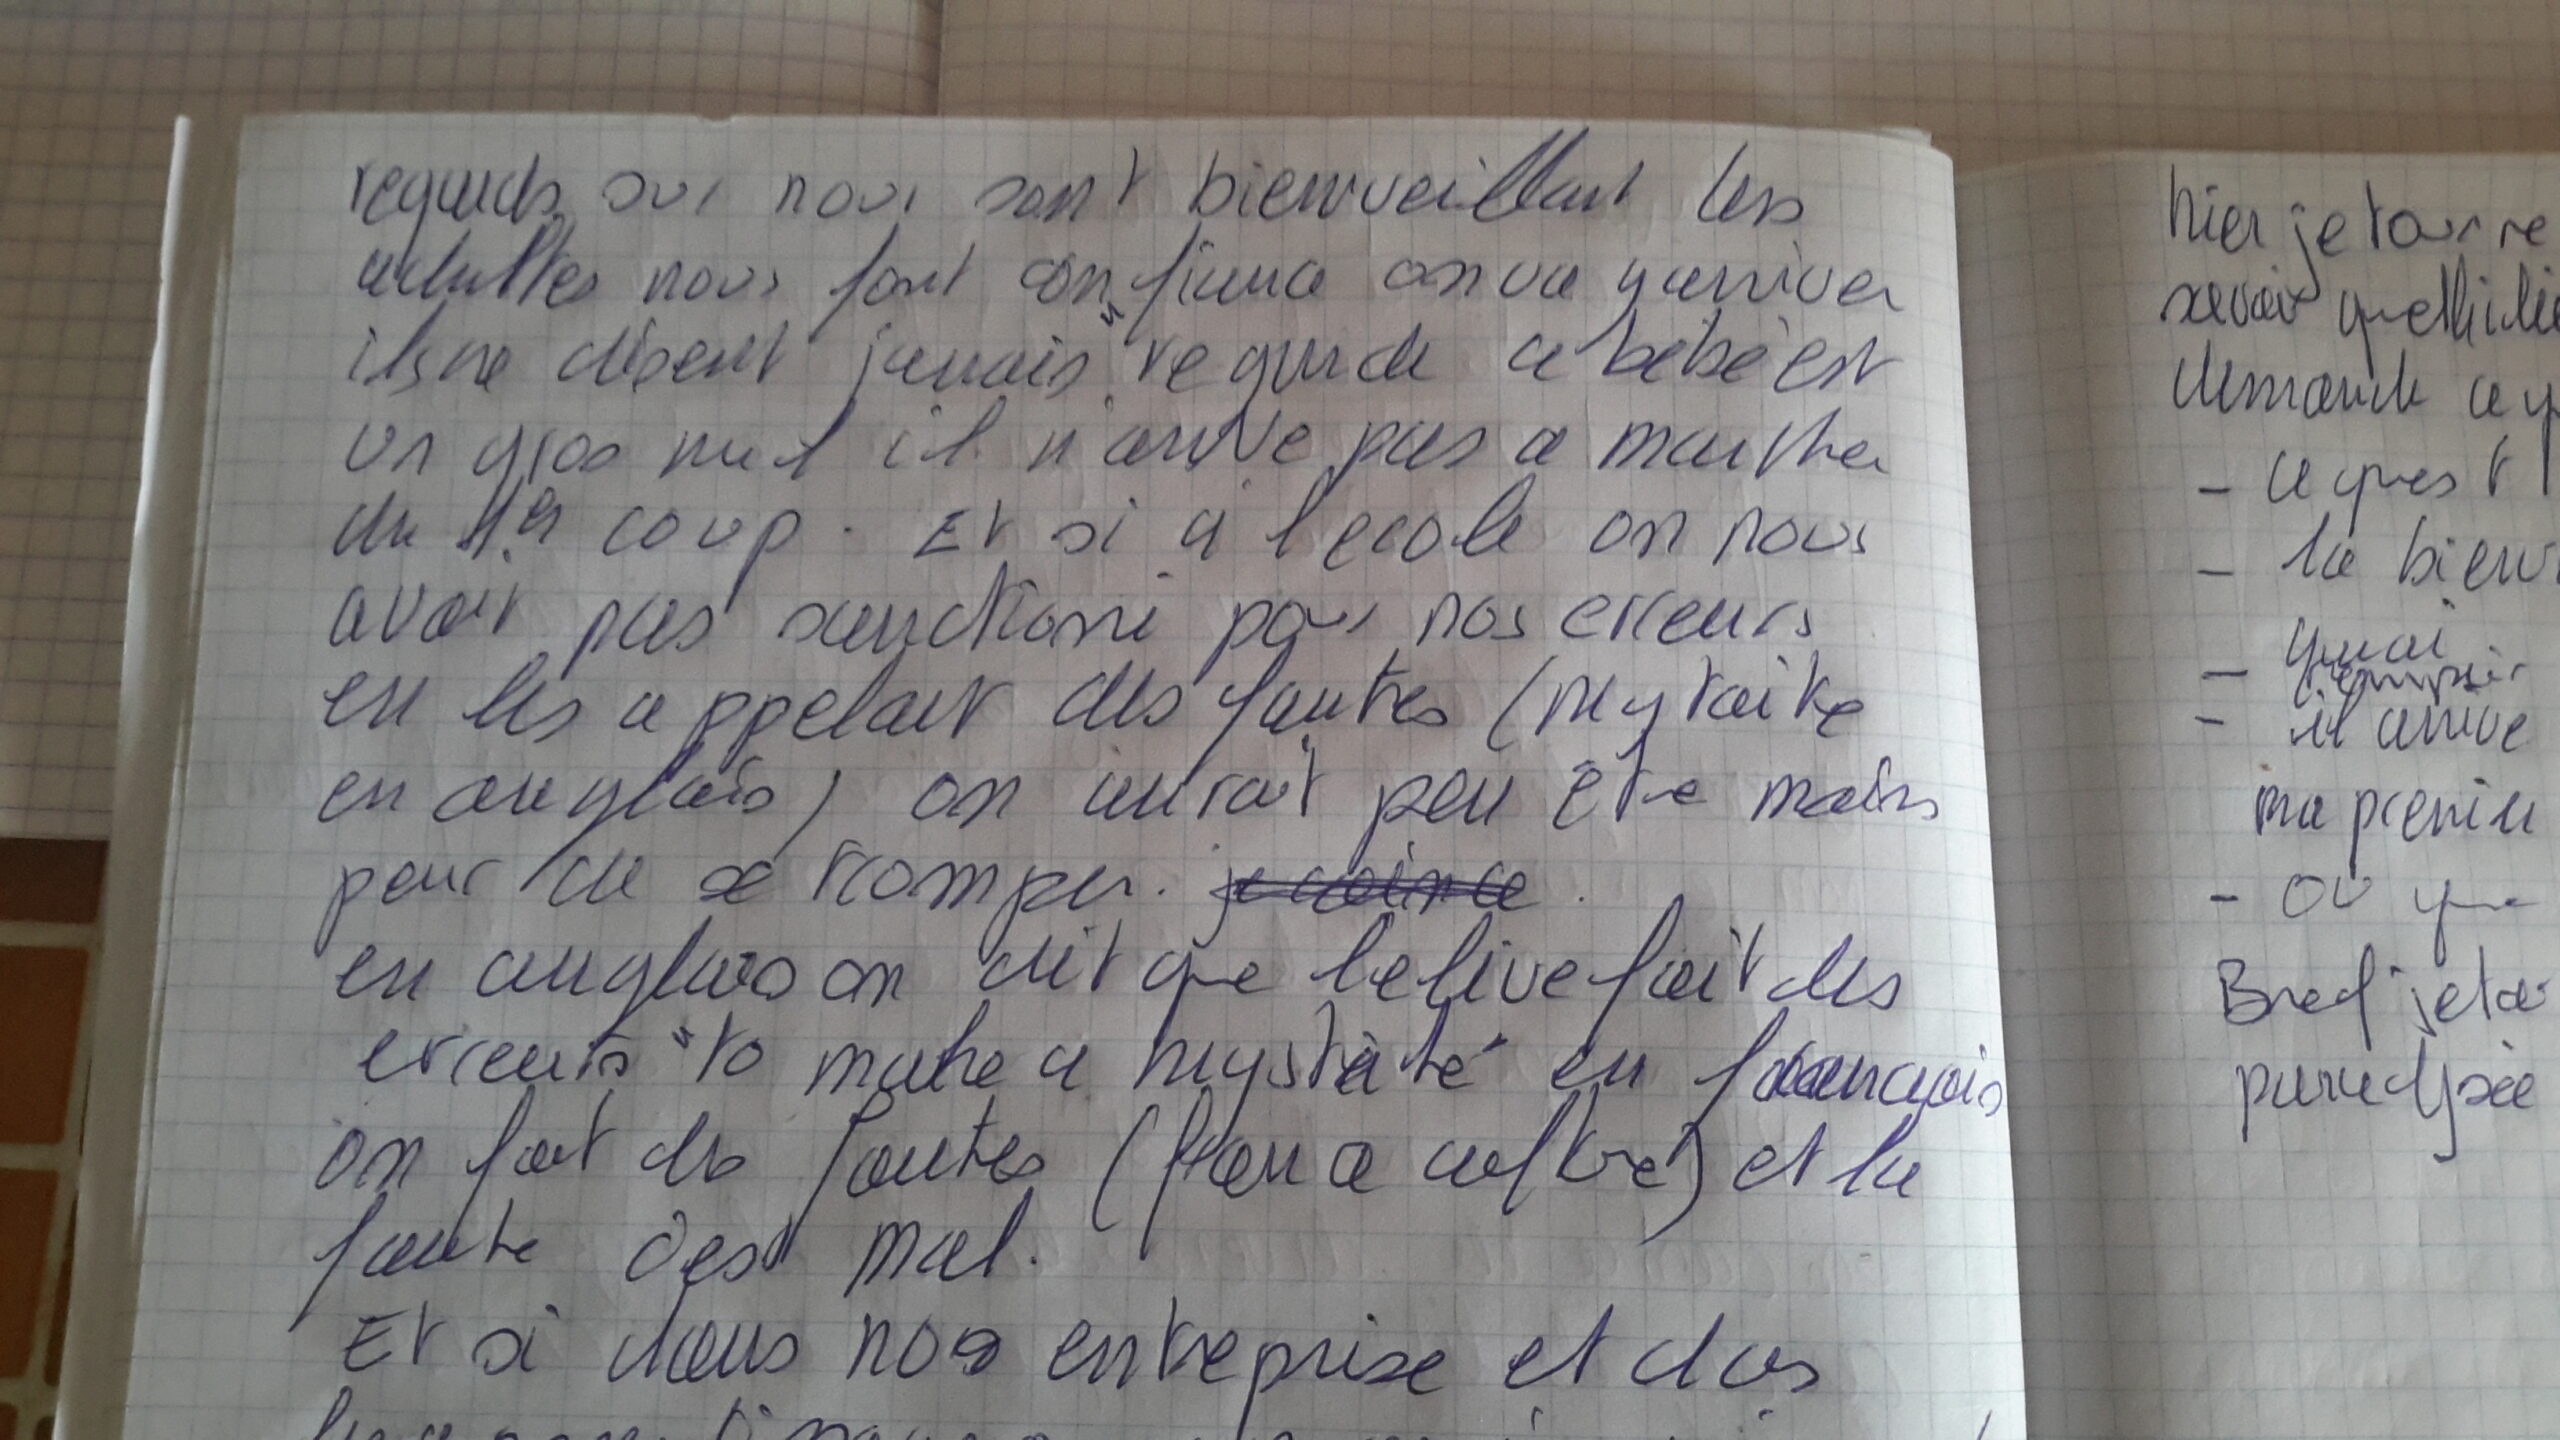 regards sur nous sont bienveillant les
adultes nous font confiance on va y arriver
ils ne disent jamais "regarde ce bébé est
un gros nul il n'arrive pas a marcher
du 1er coup. Et si à l'ecole on nous
avait pas sanctionné pour nos erreurs
en les appelait des fautes (mystaike
en anglais) on aurait peu être moins
peur de se tromper.
en anglais on dit que l'eleve fait des
erreurs "to make a mystake" en francais
on fait des fautes ( ) et la
faute c'est mal.
Et si dans nos entreprise et dans
hier je tourne
savoir
demande ce q
- ce ques t
- la bienv
- quoi
- il arrive
ma premie
- ou que
Bref je to